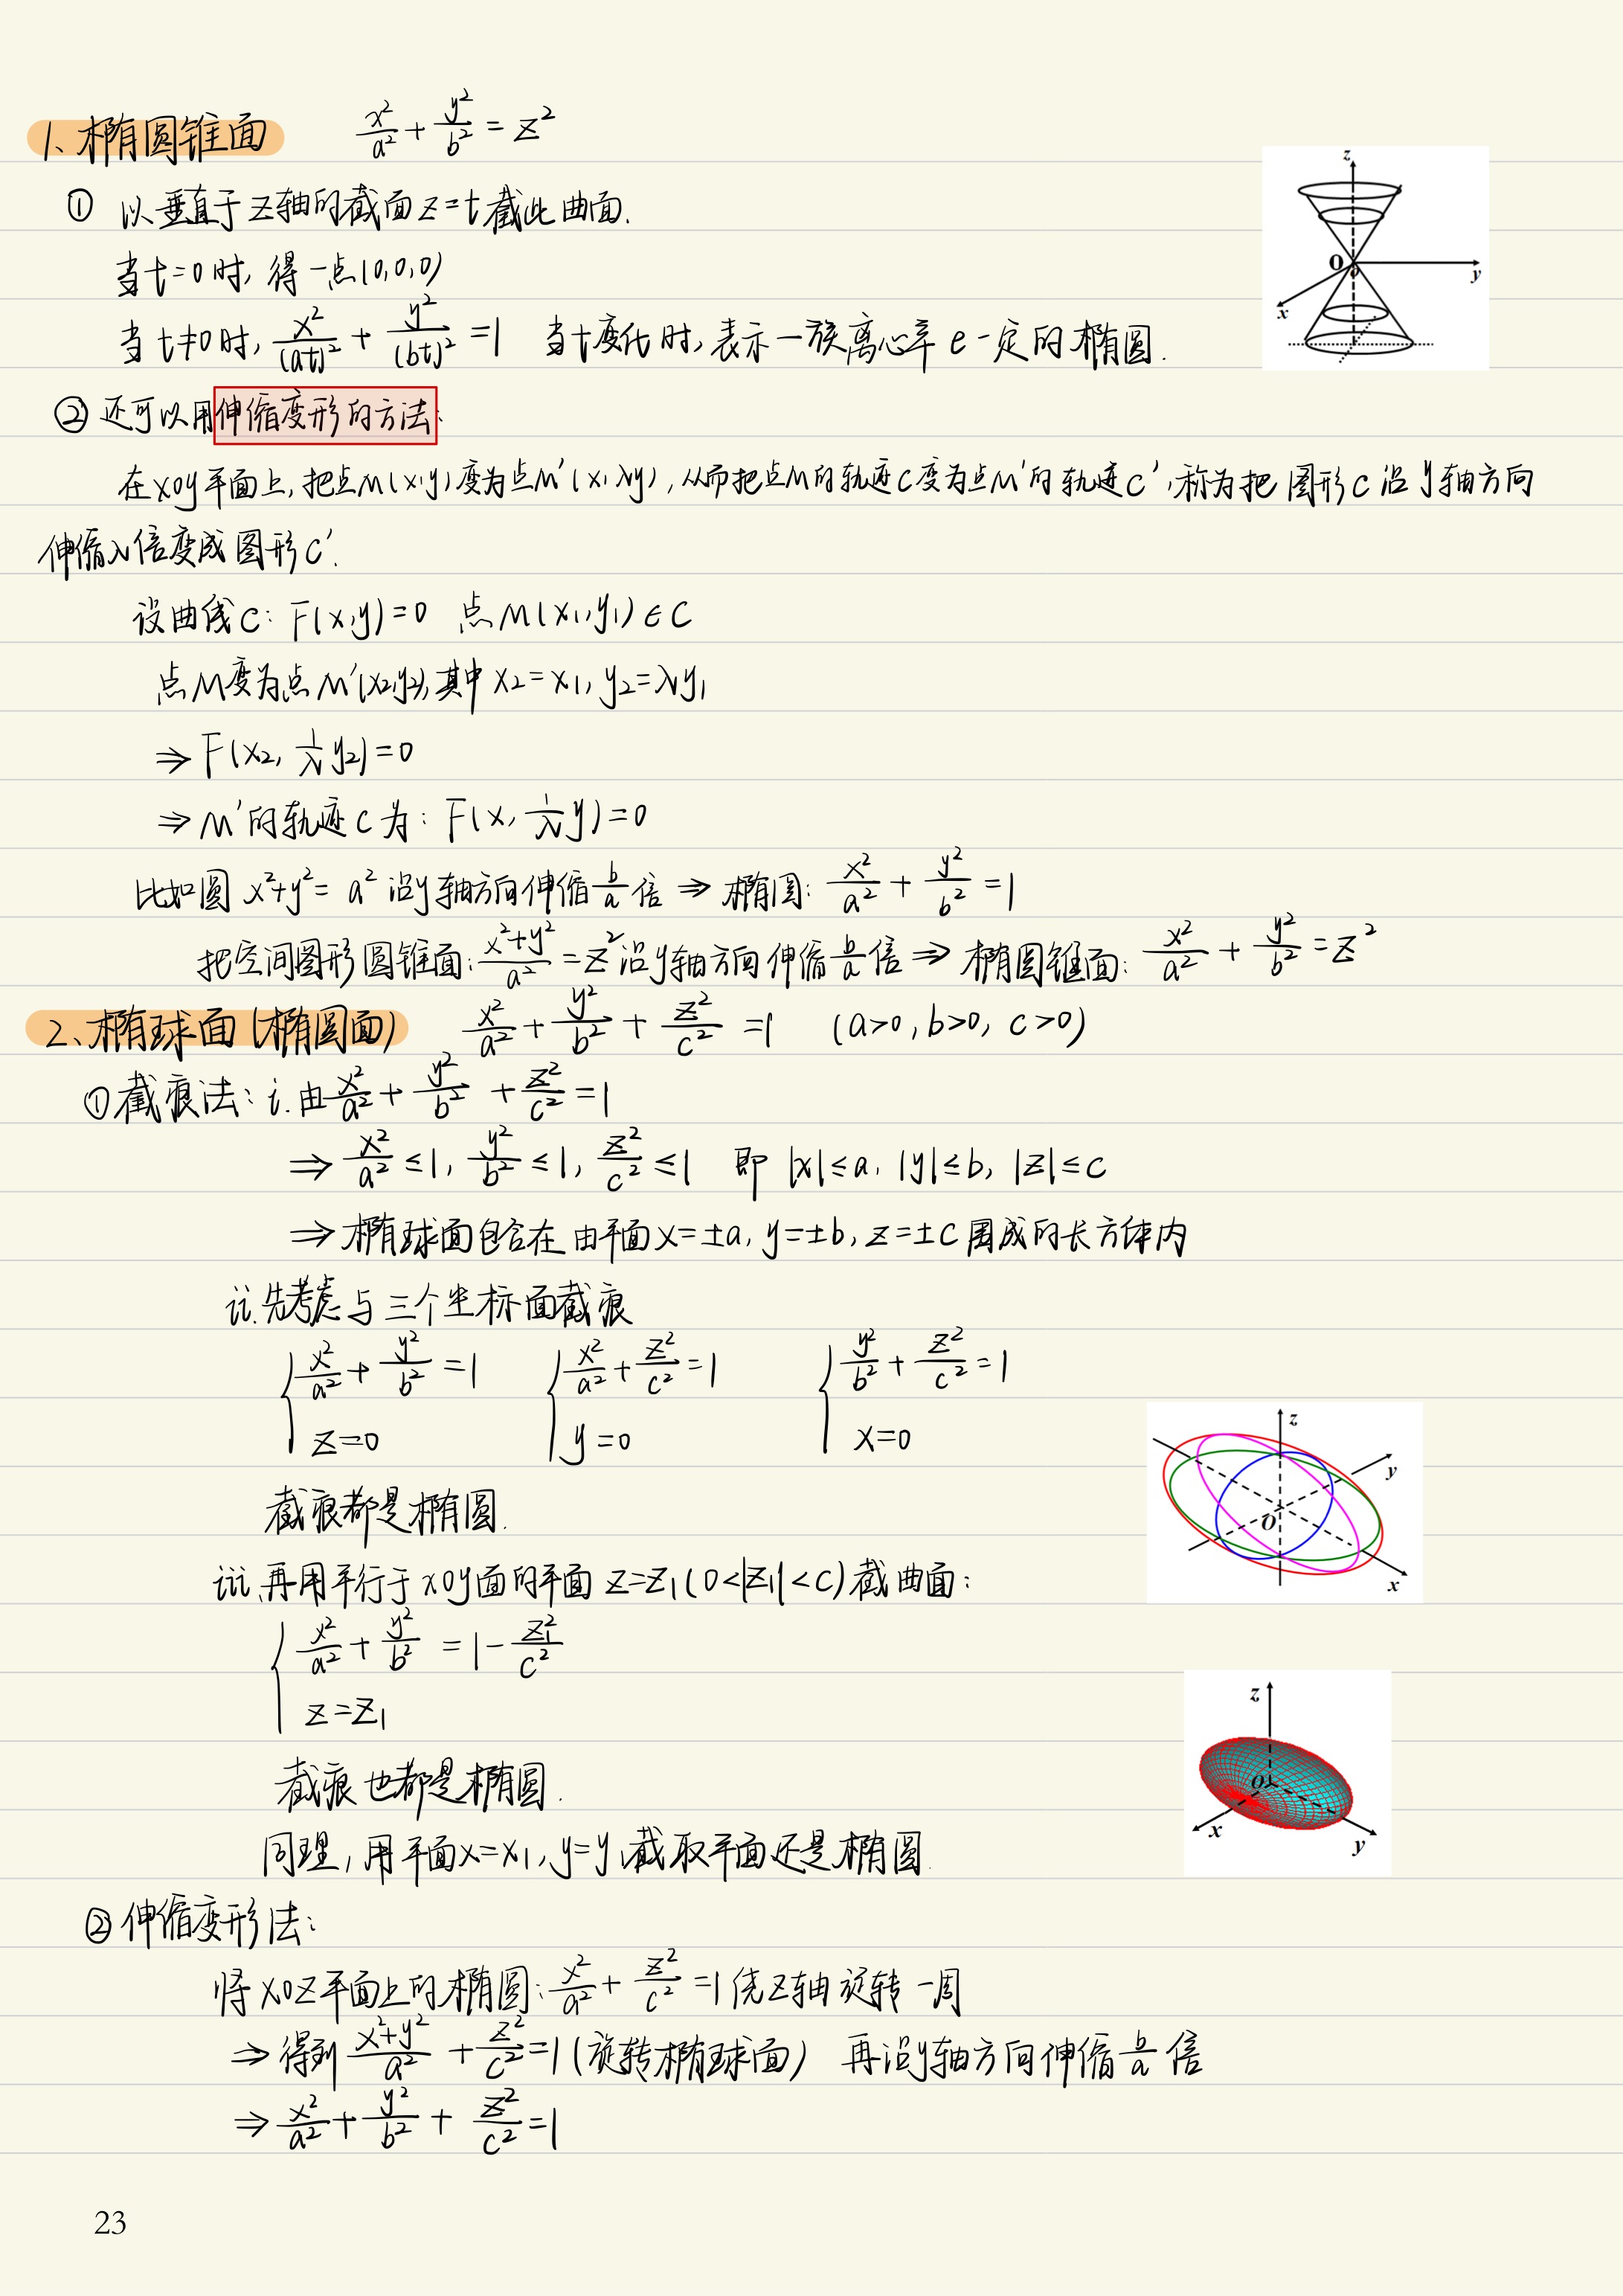 1、椭圆锥面 x²/a² + y²/b² = z²
① 以垂直于z轴的截面z=t截此曲面.
当t=0时, 得一点(0,0,0)
当t≠0时, x²/(at)² + y²/(bt)² =1 当t变化时, 表示一族离心率e一定的椭圆.
z
O
y
x
② 还可以用伸缩变形的方法:
在xoy平面上, 把点M(x,y)变为点M'(x, λy), 从而把点M的轨迹C变为点M'的轨迹C', 称为把图形C沿y轴方向
伸缩λ倍变成图形C'.
设曲线C: F(x,y)=0 点M(x₁,y₁)∈C
点M变为点M'(x₂,y₂), 其中x₂=x₁, y₂=λy₁
⇒ F(x₂, 1/λ y₂)=0
⇒ M'的轨迹C为: F(x, 1/λ y)=0
比如圆 x²+y²= a² 沿y轴方向伸缩b/a倍 ⇒ 椭圆: x²/a² + y²/b² =1
把空间图形圆锥面: (x²+y²)/a² = z² 沿y轴方向伸缩b/a倍 ⇒ 椭圆锥面: x²/a² + y²/b² = z²
2、椭球面(椭圆面) x²/a² + y²/b² + z²/c² =1 (a>0, b>0, c>0)
① 截痕法: i. 由x²/a² + y²/b² + z²/c² =1
⇒ x²/a² ≤1, y²/b² ≤1, z²/c² ≤1 即 |x|≤a, |y|≤b, |z|≤c
⇒ 椭球面包含在由平面x=±a, y=±b, z=±c围成的长方体内
ii. 先考虑与三个坐标面截痕
{ x²/a² + y²/b² =1 { x²/a² + z²/c² =1 { y²/b² + z²/c² =1
z=0 y=0 x=0
截痕都是椭圆.
z
y
O
x
iii. 再用平行于xoy面的平面 z=z₁(0<|z₁|<c)截曲面:
{ x²/a² + y²/b² = 1- z₁²/c²
z=z₁
截痕也都是椭圆.
同理, 用平面x=x₁, y=y₁截取平面还是椭圆.
z
O
x
y
② 伸缩变形法:
将xoz平面上的椭圆: x²/a² + z²/c² =1绕z轴旋转一周
⇒ 得到 (x²+y²)/a² + z²/c² =1(旋转椭球面) 再沿y轴方向伸缩b/a倍
⇒ x²/a² + y²/b² + z²/c² =1
23